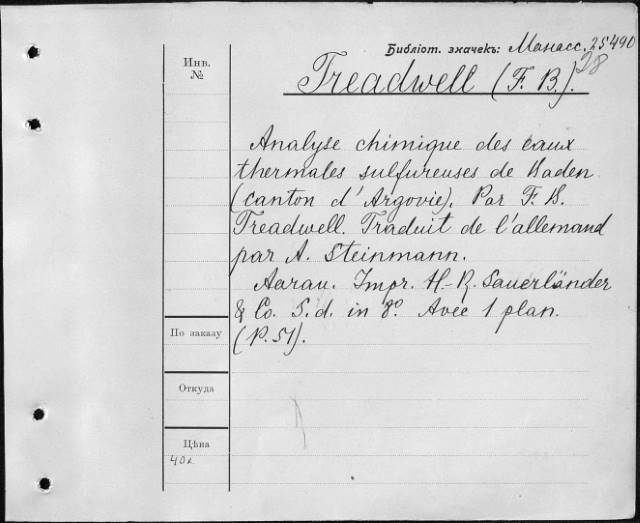 Библіот. значекъ: Манасс. 25490
28
Инв.
№
Treadwell (F. B.).
Analyse chimique des eaux
thermales sulfureuses de Baden
(canton d'Argovie). Par F. B.
Treadwell. Traduit de l'allemand
par A. Steinmann.
Aarau. Impr. H.-R. Sauerländer
& Co. S. d. in 8º. Avec 1 plan.
(P. 51).
По заказу
Откуда
Цѣна
40к